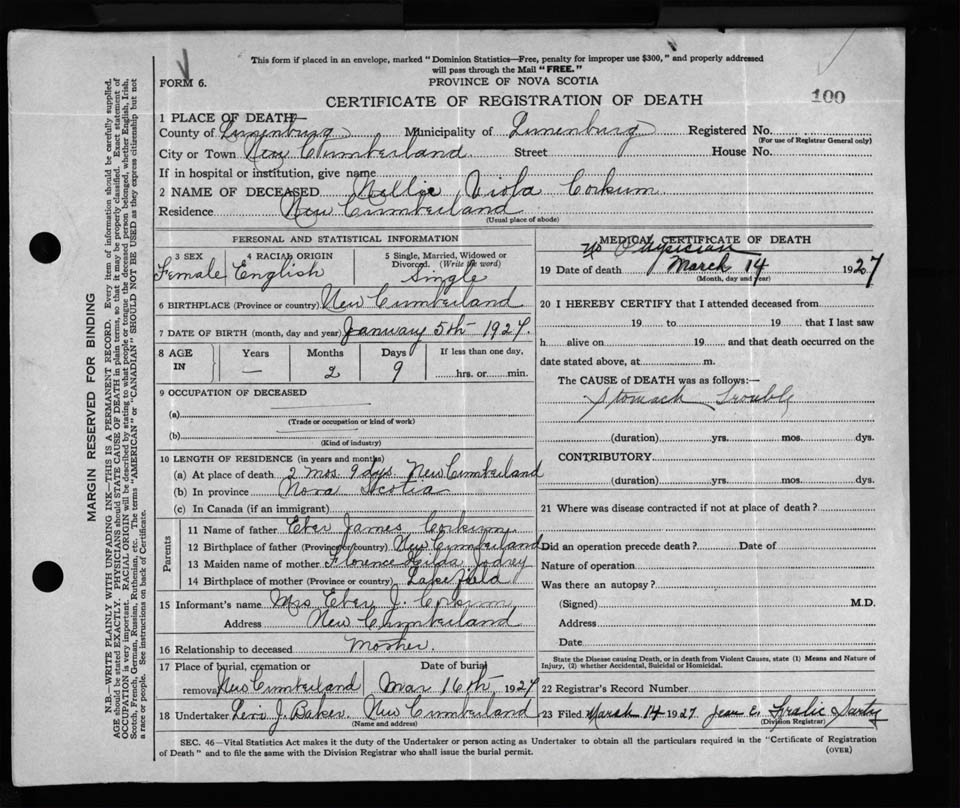 This form if placed in an envelope, marked "Dominion Statistics—Free, penalty for improper use $300," and properly addressed
will pass through the Mail "FREE."
FORM 6.
PROVINCE OF NOVA SCOTIA
CERTIFICATE OF REGISTRATION OF DEATH
100
1 PLACE OF DEATH—
County of Lunenburg Municipality of Lunenburg Registered No.
(For use of Registrar General only)
City or Town New Cumberland Street House No.
If in hospital or institution, give name
2 NAME OF DECEASED Nellie Viola Corkum
Residence New Cumberland
(Usual place of abode)
PERSONAL AND STATISTICAL INFORMATION
3 SEX 4 RACIAL ORIGIN 5 Single, Married, Widowed or Divorced (Write the word)
Female English Single
6 BIRTHPLACE (Province or country) New Cumberland
7 DATE OF BIRTH (month, day and year) January 5th 1927.
8 AGE IN Years Months Days If less than one day,
— 2 9 hrs. or min.
9 OCCUPATION OF DECEASED
(a)
(Trade or occupation or kind of work)
(b)
(Kind of industry)
10 LENGTH OF RESIDENCE (in years and months)
(a) At place of death 2 mos. 9 dys. New Cumberland
(b) In province Nova Scotia
(c) In Canada (if an immigrant)
Parents
11 Name of father Eber James Corkum
12 Birthplace of father (Province or country) New Cumberland
13 Maiden name of mother Florence
14 Birthplace of mother (Province or country) Lakefield
15 Informant's name Mrs Eber J. Corkum
Address New Cumberland
16 Relationship to deceased Mother.
17 Place of burial, cremation or removal Date of burial
New Cumberland Mar 16th 1927
18 Undertaker Levi J. Baker New Cumberland
(Name and address)
MEDICAL CERTIFICATE OF DEATH
No Physician
19 Date of death March 14 1927
(Month, day and year)
20 I HEREBY CERTIFY that I attended deceased from
19 to 19 that I last saw
h alive on 19 and that death occurred on the
date stated above, at m.
The CAUSE of DEATH was as follows:—
Stomach Trouble
(duration) yrs. mos. dys.
CONTRIBUTORY
(duration) yrs. mos. dys.
21 Where was disease contracted if not at place of death?
Did an operation precede death? Date of
Nature of operation
Was there an autopsy?
(Signed) M.D.
Address
Date
State the Disease causing Death, or in death from Violent Causes, state (1) Means and Nature of
Injury, (2) whether Accidental, Suicidal or Homicidal.
22 Registrar's Record Number
23 Filed March 14 1927 Jean E.
(Division Registrar)
SEC. 46—Vital Statistics Act makes it the duty of the Undertaker or person acting as Undertaker to obtain all the particulars required in the "Certificate of Registration
of Death" and to file the same with the Division Registrar who shall issue the burial permit.
(OVER)
MARGIN RESERVED FOR BINDING
N.B.—WRITE PLAINLY WITH UNFADING INK—THIS IS A PERMANENT RECORD. Every item of information should be carefully supplied.
AGE should be stated EXACTLY. PHYSICIANS should STATE CAUSE OF DEATH in plain terms, so that it may be properly classified. Exact statement of
OCCUPATION is very important. RACIAL ORIGIN will be described by stating to what people or tongue the deceased person belonged, whether English, Irish,
Scotch, French, German, Russian, Ruthenian, etc. The terms "AMERICAN" or "CANADIAN" SHOULD NOT BE USED as they express citizenship but not
a race or people. See instructions on back of Certificate.